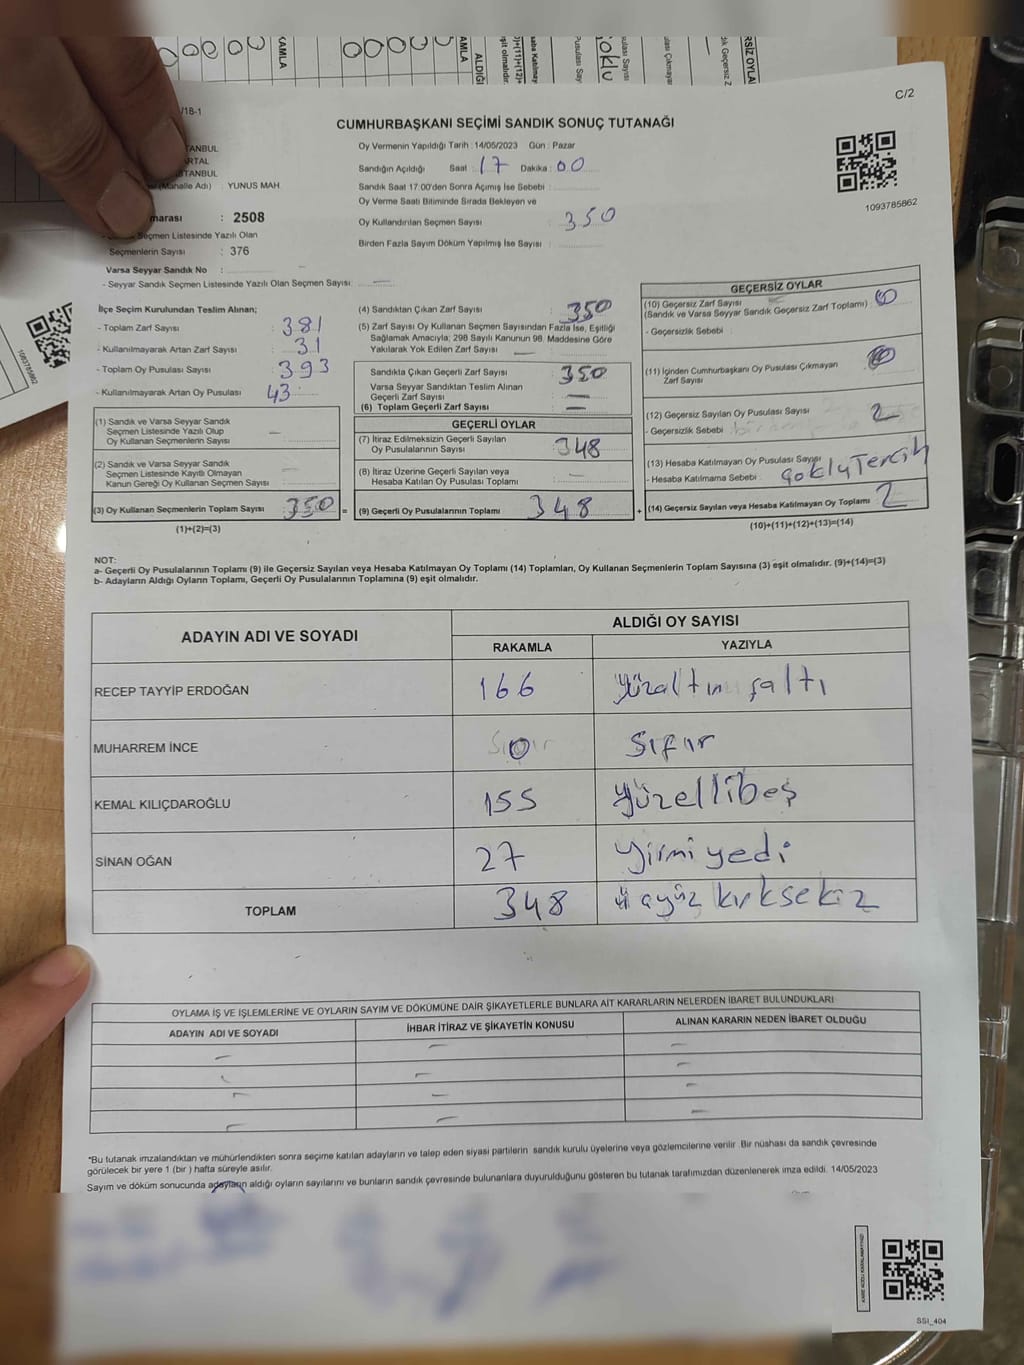 C/2
/18-1
CUMHURBAŞKANI SEÇİMİ SANDIK SONUÇ TUTANAĞI
Oy Vermenin Yapıldığı Tarih : 14/05/2023 Gün : Pazar
Sandığın Açıldığı Saat : 17 Dakika : 00
Sandık Saat 17:00'den Sonra Açımış İse Sebebi :
Oy Verme Saati Bitiminde Sırada Bekleyen ve
Oy Kullandırılan Seçmen Sayısı : 350
Birden Fazla Sayım Döküm Yapılmış İse Sayısı :
1093785862
TANBUL
ARTAL
STANBUL
(Mahalle Adı) : YUNUS MAH
marası : 2508
Seçmen Listesinde Yazılı Olan
Seçmenlerin Sayısı : 376
Varsa Seyyar Sandık No :
- Seyyar Sandık Seçmen Listesinde Yazılı Olan Seçmen Sayısı: —
İlçe Seçim Kurulundan Teslim Alınan;
- Toplam Zarf Sayısı : 381
- Kullanılmayarak Artan Zarf Sayısı : 31
- Toplam Oy Pusulası Sayısı : 393
- Kullanılmayarak Artan Oy Pusulası : 43
(1) Sandık ve Varsa Seyyar Sandık
Seçmen Listesinde Yazılı Olup
Oy Kullanan Seçmenlerin Sayısı : —
(2) Sandık ve Varsa Seyyar Sandık
Seçmen Listesinde Kayıtlı Olmayan
Kanun Gereği Oy Kullanan Seçmen Sayısı : —
(3) Oy Kullanan Seçmenlerin Toplam Sayısı : 350 =
(1)+(2)=(3)
(4) Sandıktan Çıkan Zarf Sayısı : 350
(5) Zarf Sayısı Oy Kullanan Seçmen Sayısından Fazla İse, Eşitliği
Sağlamak Amacıyla; 298 Sayılı Kanunun 98. Maddesine Göre
Yakılarak Yok Edilen Zarf Sayısı : —
Sandıkta Çıkan Geçerli Zarf Sayısı : 350
Varsa Seyyar Sandıktan Teslim Alınan
Geçerli Zarf Sayısı : —
(6) Toplam Geçerli Zarf Sayısı : —
GEÇERLİ OYLAR
(7) İtiraz Edilmeksizin Geçerli Sayılan
Oy Pusulalarının Sayısı : 348
(8) İtiraz Üzerine Geçerli Sayılan veya
Hesaba Katılan Oy Pusulası Toplamı : —
(9) Geçerli Oy Pusulalarının Toplamı : 348 +
GEÇERSİZ OYLAR
(10) Geçersiz Zarf Sayısı
(Sandık ve Varsa Seyyar Sandık Geçersiz Zarf Toplamı) : 0
- Geçersizlik Sebebi :
(11) İçinden Cumhurbaşkanı Oy Pusulası Çıkmayan
Zarf Sayısı : 0
(12) Geçersiz Sayılan Oy Pusulası Sayısı : 2
- Geçersizlik Sebebi :
(13) Hesaba Katılmayan Oy Pusulası Sayısı
- Hesaba Katılmama Sebebi : Çoklu Tercih
(14) Geçersiz Sayılan veya Hesaba Katılmayan Oy Toplamı : 2
(10)+(11)+(12)+(13)=(14)
NOT:
a- Geçerli Oy Pusulalarının Toplamı (9) ile Geçersiz Sayılan veya Hesaba Katılmayan Oy Toplamı (14) Toplamları, Oy Kullanan Seçmenlerin Toplam Sayısına (3) eşit olmalıdır. (9)+(14)=(3)
b- Adayların Aldığı Oyların Toplamı, Geçerli Oy Pusulalarının Toplamına (9) eşit olmalıdır.
ADAYIN ADI VE SOYADI
ALDIĞI OY SAYISI
RAKAMLA YAZIYLA
RECEP TAYYİP ERDOĞAN 166 yüzaltmışaltı
MUHARREM İNCE 0 Sıfır
KEMAL KILIÇDAROĞLU 155 yüzellibeş
SİNAN OĞAN 27 yirmiyedi
TOPLAM 348 kırksekiz
OYLAMA İŞ VE İŞLEMLERİNE VE OYLARIN SAYIM VE DÖKÜMÜNE DAİR ŞİKAYETLERLE BUNLARA AİT KARARLARIN NELERDEN İBARET BULUNDUKLARI
ADAYIN ADI VE SOYADI İHBAR İTİRAZ VE ŞİKAYETİN KONUSU ALINAN KARARIN NEDEN İBARET OLDUĞU
*Bu tutanak imzalandıktan ve mühürlendikten sonra seçime katılan adayların ve talep eden siyasi partilerin sandık kurulu üyelerine veya gözlemcilerine verilir. Bir nüshası da sandık çevresinde
görülecek bir yere 1 (bir ) hafta süreyle asılır.
Sayım ve döküm sonucunda adayların aldığı oyların sayılarını ve bunların sandık çevresinde bulunanlara duyurulduğunu gösteren bu tutanak tarafımızdan düzenlenerek imza edildi. 14/05/2023
SSI_404